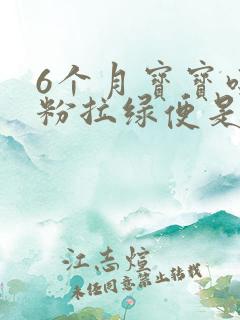 6个月宝宝
粉拉绿便是
江志煊
未经同意禁止转载